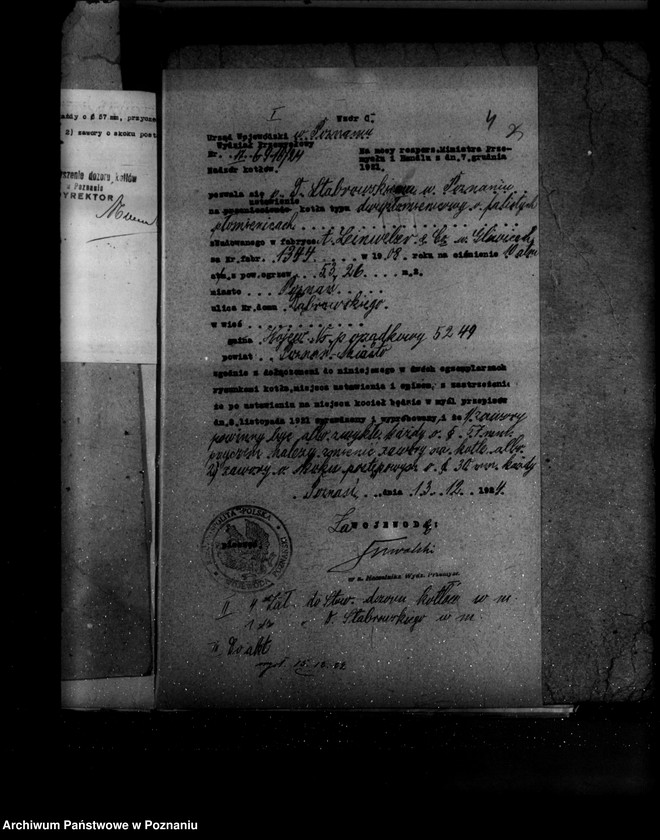 ażdy o ∅ 57 mm, przycze
2) zawory o skoku post
yszenie dozoru kotłów
w Poznaniu
DYREKTOR
I
Wzór C.
4
Urząd Wojewódzki w Poznaniu
Wydział Przemysłowy
Nr.
Nadzór kotłów.
Na mocy rozporz. Ministra Prze-
mysłu i Handlu z dn. 7. grudnia
1921.
pozwala się f. T. Stabrowskiemu w Poznaniu
ustawienie
na kotła typu dwupłomienicowy o falistych
płomienicach
zbudowanego w fabryce: Leinveber & Co w Gliwicach
za Nr. fabr. 1344 w 1908. roku na ciśnienie 10 atm
atm. z pow. ogrzew. 53,26 m. 2.
miasto Poznań
ulica Nr. domu Dąbrowskiego.
w wieś
gmina Wojew. Nr. porządkowy 5249
powiat Poznań-Miasto
zgodnie z dołączonemi do niniejszego w dwóch egzemplarzach
rysunkami kotła, miejsca ustawienia i opisem, z zastrzeżenie
że po ustawieniu na miejscu kocioł będzie w myśl przepisów
dn. 8. listopada 1921 sprawdzony i wypróbowany, i że 1/ zawory
powinny być albo zwykłe każdy o ∅ 57 mm.
przyczem należy zmienić zawory na kotle albo
2) zawory o skoku postępowych o ∅ 30 mm każdy
Poznań, dnia 13. 12. 1924.
Za WOJEWODĘ:
RZECZPOSPOLITA POLSKA
Kowalski
w z. Naczelnika Wydz. Przemysł.
II do Stow. dozoru kotłów w m.
Stabrowskiego w m.
Do akt
Archiwum Państwowe w Poznaniu